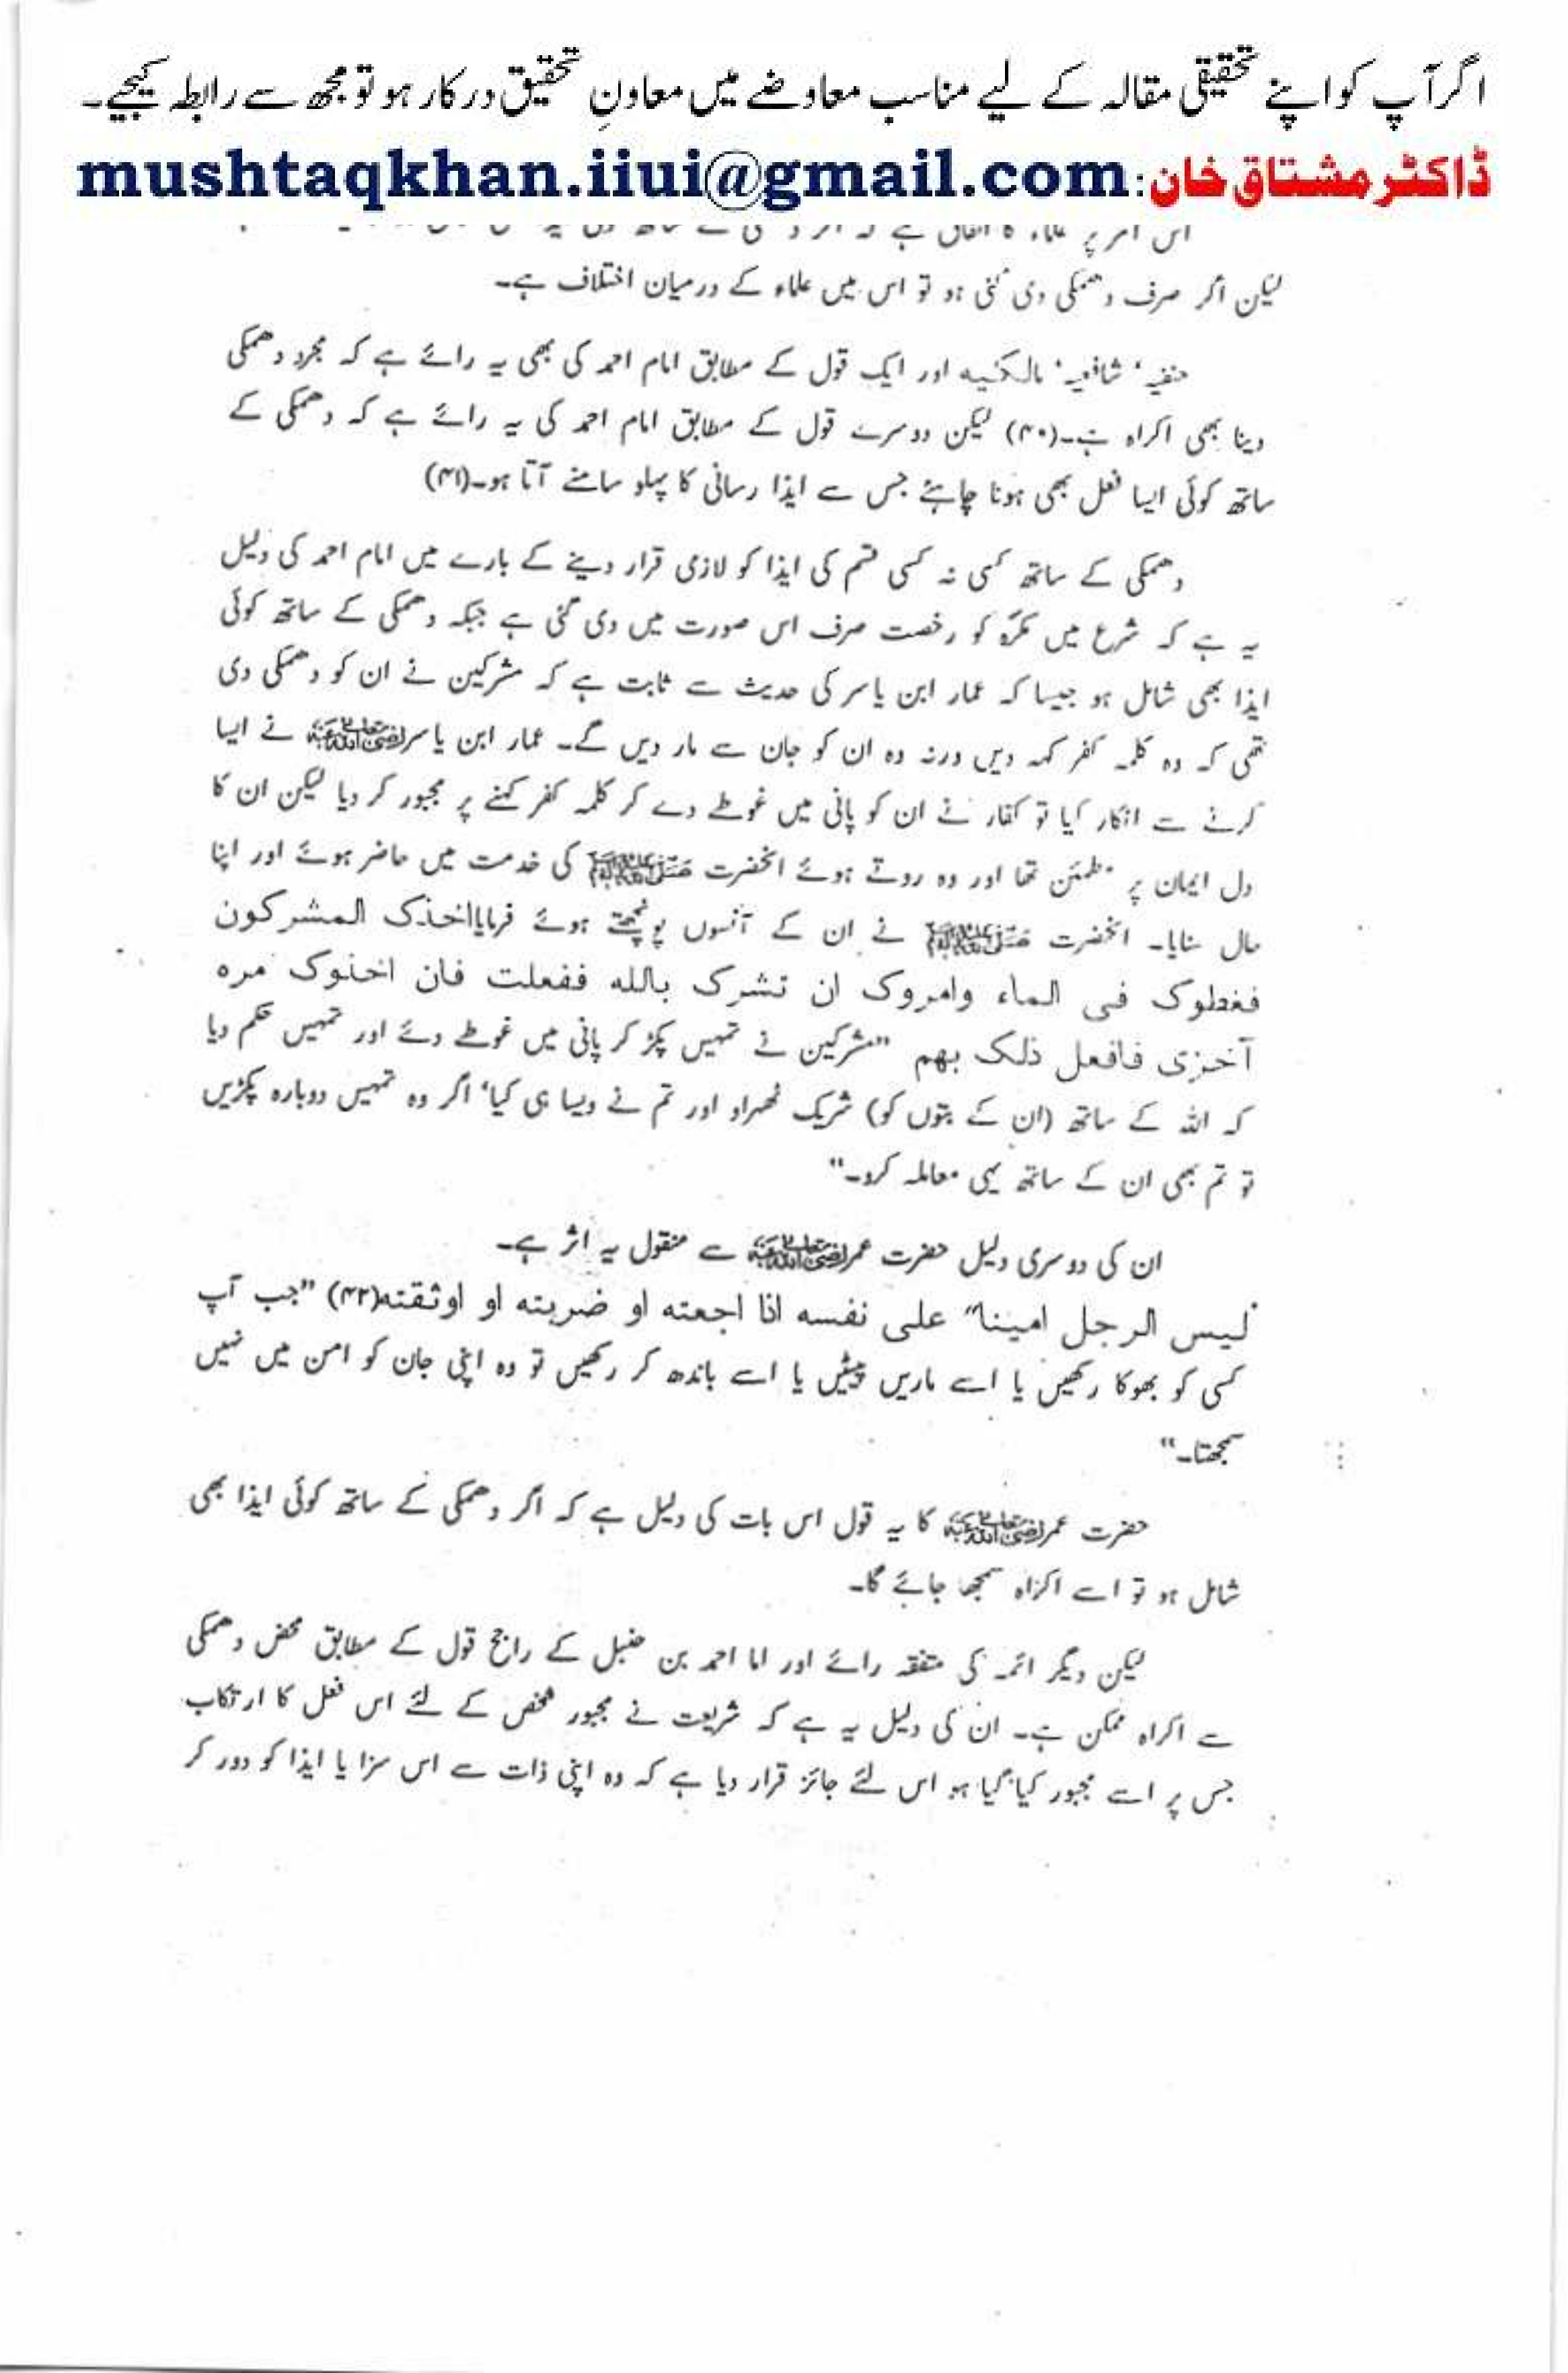 اگر آپ کو اپنے تحقیقی مقالہ کے لیے مناسب معاوضے میں معاونِ تحقیق درکار ہو تو مجھ سے رابطہ کیجیے۔
ڈاکٹر مشتاق خان: mushtaqkhan.iiui@gmail.com
اس امر پر علماء کا اتفاق ہے کہ اگر دھمکی کے ساتھ
لیکن اگر صرف دھمکی دی گئی ہو تو اس میں علماء کے درمیان اختلاف ہے۔
حنفیہ' شافعیہ' مالکیہ اور ایک قول کے مطابق امام احمد کی بھی یہ رائے ہے کہ مجرد دھمکی
دینا بھی اکراہ ہے۔(۴۰) لیکن دوسرے قول کے مطابق امام احمد کی یہ رائے ہے کہ دھمکی کے
ساتھ کوئی ایسا فعل بھی ہونا چاہئے جس سے ایذا رسانی کا پہلو سامنے آتا ہو۔(۴۱)
دھمکی کے ساتھ کسی نہ کسی قسم کی ایذا کو لازمی قرار دینے کے بارے میں امام احمد کی دلیل
یہ ہے کہ شرع میں مکرَہ کو رخصت صرف اس صورت میں دی گئی ہے جبکہ دھمکی کے ساتھ کوئی
ایذا بھی شامل ہو جیسا کہ عمار ابن یاسر کی حدیث سے ثابت ہے کہ مشرکین نے ان کو دھمکی دی
تھی کہ وہ کلمہ کفر کہہ دیں ورنہ وہ ان کو جان سے مار دیں گے۔ عمار ابن یاسر رضی اللہ تعالیٰ عنہ نے ایسا
کرنے سے انکار کیا تو کفار نے ان کو پانی میں غوطے دے کر کلمہ کفر کہنے پر مجبور کر دیا لیکن ان کا
دل ایمان پر مطمئن تھا اور وہ روتے ہوئے انحضرت صلی اللہ علیہ وسلم کی خدمت میں حاضر ہوئے اور اپنا
حال سنایا۔ انحضرت صلی اللہ علیہ وسلم نے ان کے آنسوں پونچھتے ہوئے فرمایا اخذک المشرکون
فغطوک فی الماء وامروک ان تشرک باللہ ففعلت فان اخذوک مرہ
آخزی فافعل ذلک بھم "مشرکین نے تمہیں پکڑ کر پانی میں غوطے دئے اور تمہیں حکم دیا
کہ اللہ کے ساتھ (ان کے بتوں کو) شریک ٹھہراو اور تم نے ویسا ہی کیا' اگر وہ تمہیں دوبارہ پکڑیں
تو تم بھی ان کے ساتھ یہی معاملہ کرو۔"
ان کی دوسری دلیل حضرت عمر رضی اللہ تعالیٰ عنہ سے منقول یہ اثر ہے۔
لیس الرجل امینا" علی نفسہ اذا اجعتہ او ضربتہ او اوثقتہ(۴۲) "جب آپ
کسی کو بھوکا رکھیں یا اسے ماریں پیٹیں یا اسے باندھ کر رکھیں تو وہ اپنی جان کو امن میں نہیں
سمجھتا۔"
حضرت عمر رضی اللہ تعالیٰ عنہ کا یہ قول اس بات کی دلیل ہے کہ اگر دھمکی کے ساتھ کوئی ایذا بھی
شامل ہو تو اسے اکراہ سمجھا جائے گا۔
لیکن دیگر ائمہ کی متفقہ رائے اور اما احمد بن حنبل کے راجح قول کے مطابق محض دھمکی
سے اکراہ ممکن ہے۔ ان کی دلیل یہ ہے کہ شریعت نے مجبور شخص کے لئے اس فعل کا ارتکاب
جس پر اسے مجبور کیا گیا ہو اس لئے جائز قرار دیا ہے کہ وہ اپنی ذات سے اس سزا یا ایذا کو دور کر